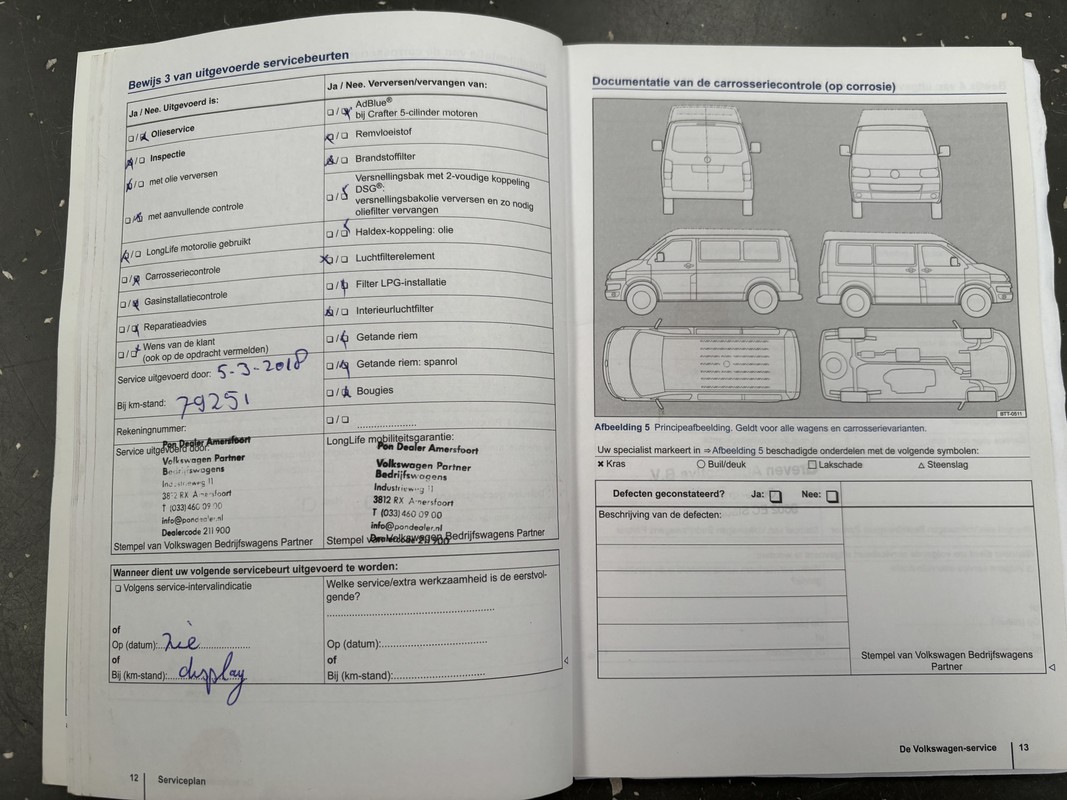 Bewijs 3 van uitgevoerde servicebeurten
Ja / Nee. Uitgevoerd is:
Olieservice
Inspectie
met olie verversen
met aanvullende controle
LongLife motorolie gebruikt
Carrosseriecontrole
Gasinstallatiecontrole
Reparatieadvies
Wens van de klant
(ook op de opdracht vermelden)
Service uitgevoerd door: 5-3-2018
Bij km-stand: 79251
Rekeningnummer:
Service uitgevoerd door:
Pon Dealer Amersfoort
Volkswagen Partner
Bedrijfswagens
Industrieweg 11
3812 RX Amersfoort
T (033) 460 09 00
info@pondealer.nl
Dealercode 211 900
Stempel van Volkswagen Bedrijfswagens Partner
Ja / Nee. Verversen/vervangen van:
AdBlue®
bij Crafter 5-cilinder motoren
Remvloeistof
Brandstoffilter
Versnellingsbak met 2-voudige koppeling
DSG®:
versnellingsbakolie verversen en zo nodig
oliefilter vervangen
Haldex-koppeling: olie
Luchtfilterelement
Filter LPG-installatie
Interieurluchtfilter
Getande riem
Getande riem: spanrol
Bougies
LongLife mobiliteitsgarantie:
Pon Dealer Amersfoort
Volkswagen Partner
Bedrijfswagens
Industrieweg 11
3812 RX Amersfoort
T (033) 460 09 00
info@pondealer.nl
Dealercode 211 900
Stempel van Volkswagen Bedrijfswagens Partner
Wanneer dient uw volgende servicebeurt uitgevoerd te worden:
Volgens service-intervalindicatie
of
Op (datum): zie
of
Bij (km-stand): display
Welke service/extra werkzaamheid is de eerstvol-
gende?
Op (datum):
of
Bij (km-stand):
12 Serviceplan
Documentatie van de carrosseriecontrole (op corrosie)
BTT-0511
Afbeelding 5 Principeafbeelding. Geldt voor alle wagens en carrosserievarianten.
Uw specialist markeert in ⇒ Afbeelding 5 beschadigde onderdelen met de volgende symbolen:
Kras Buil/deuk Lakschade Steenslag
Defecten geconstateerd? Ja: Nee:
Beschrijving van de defecten:
Stempel van Volkswagen Bedrijfswagens
Partner
De Volkswagen-service 13